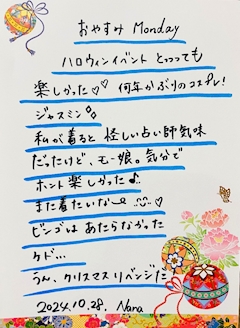 おやすみ Monday
ハロウィンイベント とっっっても
楽しかった♡♡ 何年かぶりのコスプレ!
ジャスミン
私が着ると 怪しい占い師気味
だったけど、モー娘。気分で
ホント楽しかった♪
また着たいな
ビンゴは あたらなかった
ケド…
うん、クリスマスリベンジだ
2024.10.28. Nana